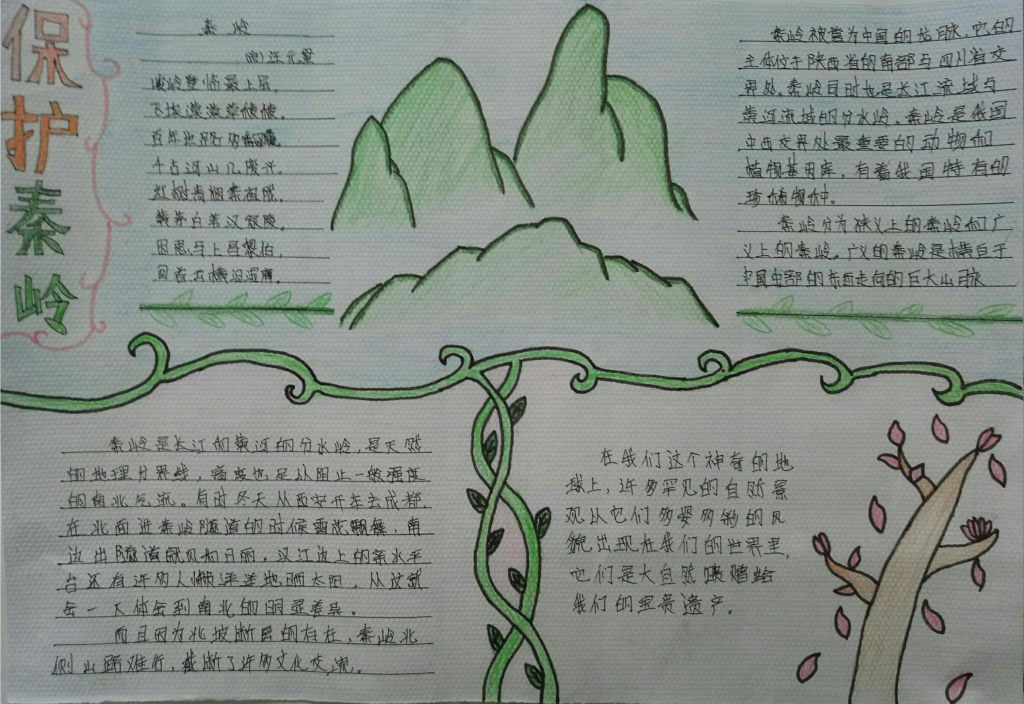 保护秦岭
秦岭
(明)汪元量
峻岭登临最上层,
飞埃漠漠草
百年世路多
千古河山几废兴。
红树青烟秦祖陇,
黄茅白苇汉家陵。
因思马上昌黎伯,
回首云横泪湿膺。
秦岭被誉为中国的龙脉,它的
主体位于陕西省的南部与四川省交
界处,秦岭同时也是长江流域与
黄河流域的分水岭。秦岭是我国
中西交界处最重要的动物和
植物基因库,有着我国特有的
珍植物种。
秦岭分为狭义上的秦岭和广
义上的秦岭。广义的秦岭是横亘于
中国中部的东西走向的巨大山脉
秦岭是长江和黄河的分水岭,是天然
的地理分界线,高度也足以阻止一般强度
的南北气流。有时冬天从西安开车去成都,
在北面进秦岭隧道的时候雪花飘飘,南
边出隧道就风和日丽,汉江边上的亲水平
台还有许多人懒洋洋地晒太阳,从这就
能一下体会到南北的明显差异。
而且因为北坡断层的存在,秦岭北
侧山路难行,截断了许多文化交流。
在我们这个神奇的地
球上,许多罕见的自然景
观以它们多姿多彩的风
貌出现在我们的世界里,
它们是大自然赐赠给
我们的宝贵遗产。